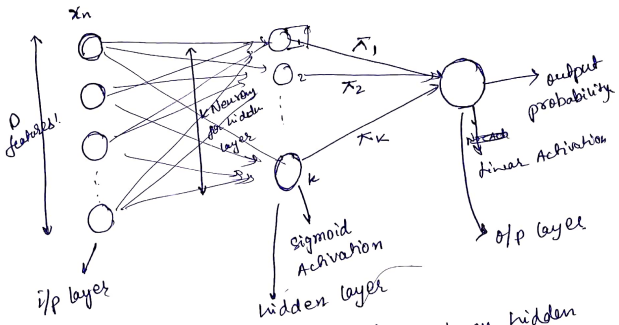 xn
D
features!
K Neurons
for hidden
layer
1
2
K
π1
π2
πK
output
probability
Linear Activation
Sigmoid
Activation
o/p layer
i/p layer
hidden layer
hidden